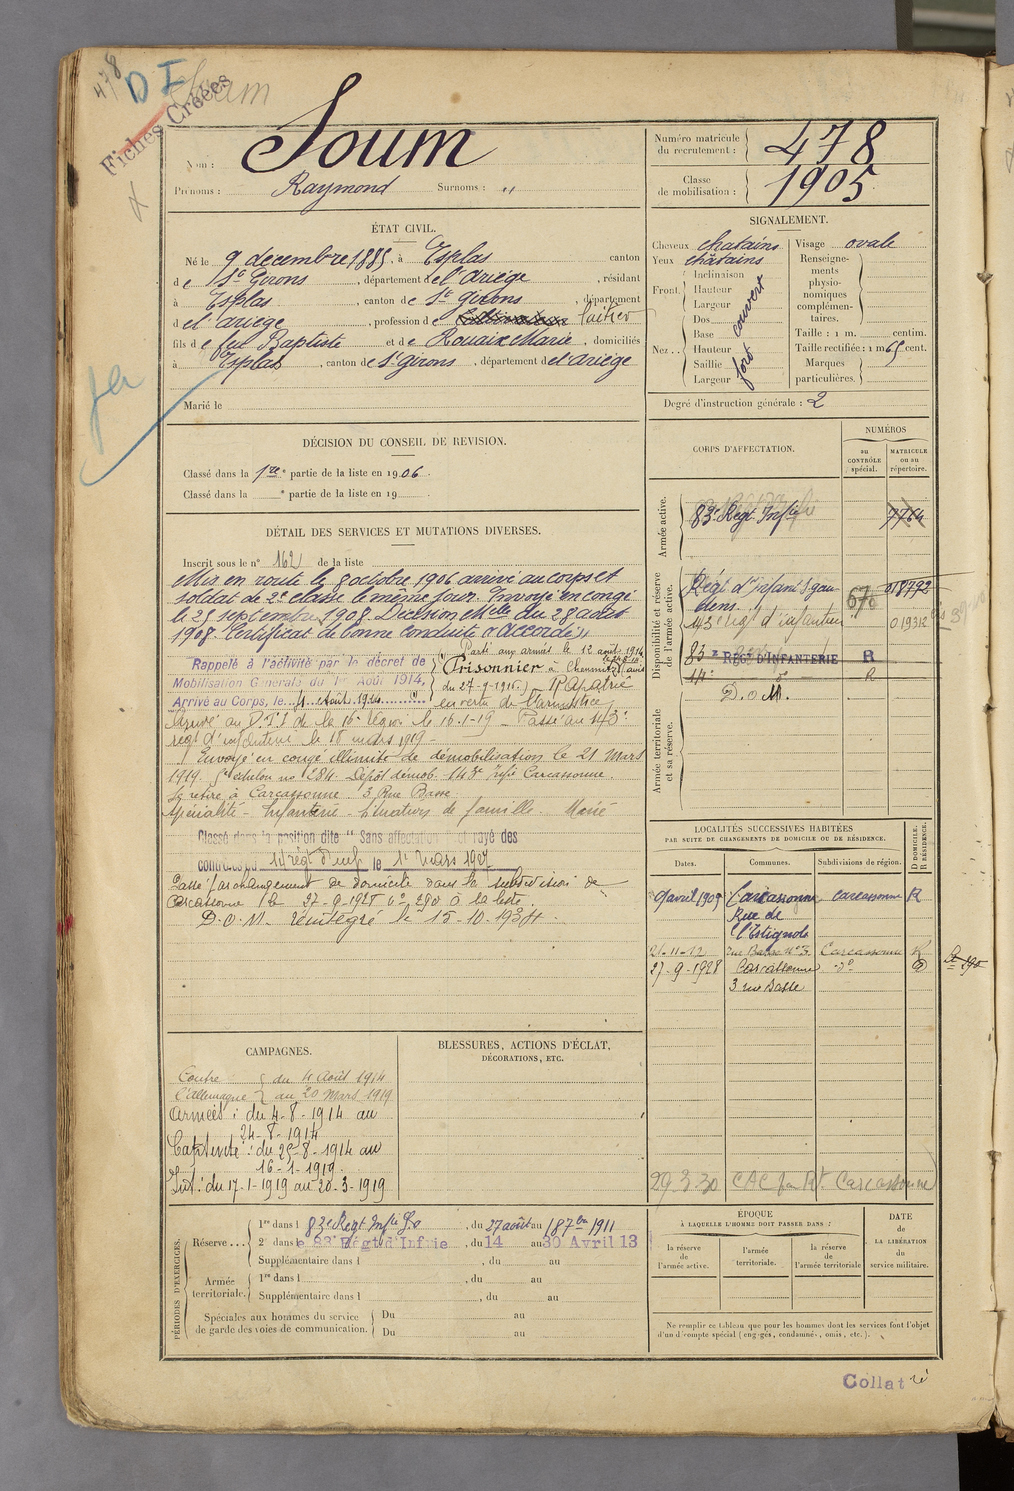 478
D I
Soum
Fiches Créées
Nom : Soum
Prénoms : Raymond Surnoms : "
Numéro matricule du recrutement : 478
Classe de mobilisation : 1905
ÉTAT CIVIL.
Né le 9 décembre 1885, à Esplas canton
de St Girons, département de l'Ariège, résidant
à Esplas, canton de St Girons, département
d el'ariège, profession de laitier
fils de feu Baptiste et de Rouaix Marie, domiciliés
à Esplas, canton de St girons, département de l'ariège
Marié le
SIGNALEMENT.
Cheveux chatains
Yeux châtains
Front. Inclinaison
Hauteur
Largeur
couvert
Nez . . Dos
Base
Hauteur
Saillie
Largeur
fort
Visage ovale
Renseignements physionomiques complémentaires.
Taille : 1 m. centim.
Taille rectifiée : 1 m 65 cent.
Marques particulières.
Degré d'instruction générale : 2
DÉCISION DU CONSEIL DE REVISION.
Classé dans la 1re e partie de la liste en 1906.
Classé dans la e partie de la liste en 19
CORPS D'AFFECTATION.
NUMÉROS
au CONTRÔLE spécial.
MATRICULE ou au répertoire.
Armée active.
83e Regt Inftie 7764
Disponibilité et réserve de l'armée active.
Régt d'infant
018792
143e reg t d'infanterie 019312
83 e REGt D'INFANTERIE R
14e do R
D.o.M.
Armée territoriale et sa réserve.
DÉTAIL DES SERVICES ET MUTATIONS DIVERSES.
Inscrit sous le n° 162 de la liste
Mis en route le 8 octobre 1906 arrivé au corps et
soldat de 2e classe le même jour. Envoyé en congé
le 25 septembre 1908. Décision Mlle du 28 août
1908. Certificat de bonne conduite "Accordé"
Rappelé à l'activité par le décret de
Mobilisation Générale du 1er Août 1914,
Arrivé au Corps, le 4 Août 1914
Parti aux armées le 12 août 1914
Prisonnier à Chemnitz (avis
du 27-9-1915) Rapatrié
en vertu de l'armistice
Arrivé au D.T.I de la 16e région le 16-1-19 - Passé au 143e
regt d'infanterie le 18 mars 1919 -
Envoyé en congé illimité de démobilisation le 21 mars
1919. echelon no 284. Dépôt démob. 143e Inftie Carcassonne.
Se retire à Carcassonne 3 Rue Basse
Spécialité - Infanterie - Situation de famille. Marié
Classé dans la position dite " Sans affectation " et rayé des
contrôles du 14 régt d'inf le 1er mars 1927
Passé par changement de domicile dans la subdivision de
Carcassonne le 27-9-1928 n° 290 à la liste
D.O.M. réintégré le 15-10-1934.
LOCALITÉS SUCCESSIVES HABITÉES
PAR SUITE DE CHANGEMENTS DE DOMICILE OU DE RÉSIDENCE.
Dates. Communes. Subdivisions de région. D DOMICILE. R RÉSIDENCE.
9 avril 1909 Carcassonne carcassonne R
Rue de
l'Estagnole
21-11-12 rue Basse N° 3 Carcassonne R
27-9-1928 Carcassonne do D
3 rue Basse
29.3.30 CAC Carcassonne
CAMPAGNES.
Contre l'Allemagne { du 4 Août 1914
au 20 Mars 1919
Armées : du 4-8-1914 au
24-8-1914
Captivité : du 25-8-1914 au
16-1-1919.
Int : du 17-1-1919 au 20-3-1919
BLESSURES, ACTIONS D'ÉCLAT,
DÉCORATIONS, ETC.
PÉRIODES D'EXERCICES.
Réserve . . . 1re dans l 83e Regt Inftie, du 27 août au 18 7bre 1911
2e dans le 83 Régt d'Infrie, du 14 au 30 Avril 13
Supplémentaire dans l, du au
Armée territoriale. 1re dans l, du au
Supplémentaire dans l, du au
Spéciales aux hommes du service de garde des voies de communication. Du au
Du au
ÉPOQUE
À LAQUELLE L'HOMME DOIT PASSER DANS :
la réserve de l'armée active.
l'armée territoriale.
la réserve de l'armée territoriale
DATE
de
LA LIBÉRATION
du
service militaire.
Ne remplir ce tableau que pour les hommes dont les services font l'objet
d'un décompte spécial (engagés, condamnés, omis, etc.).
Collatré